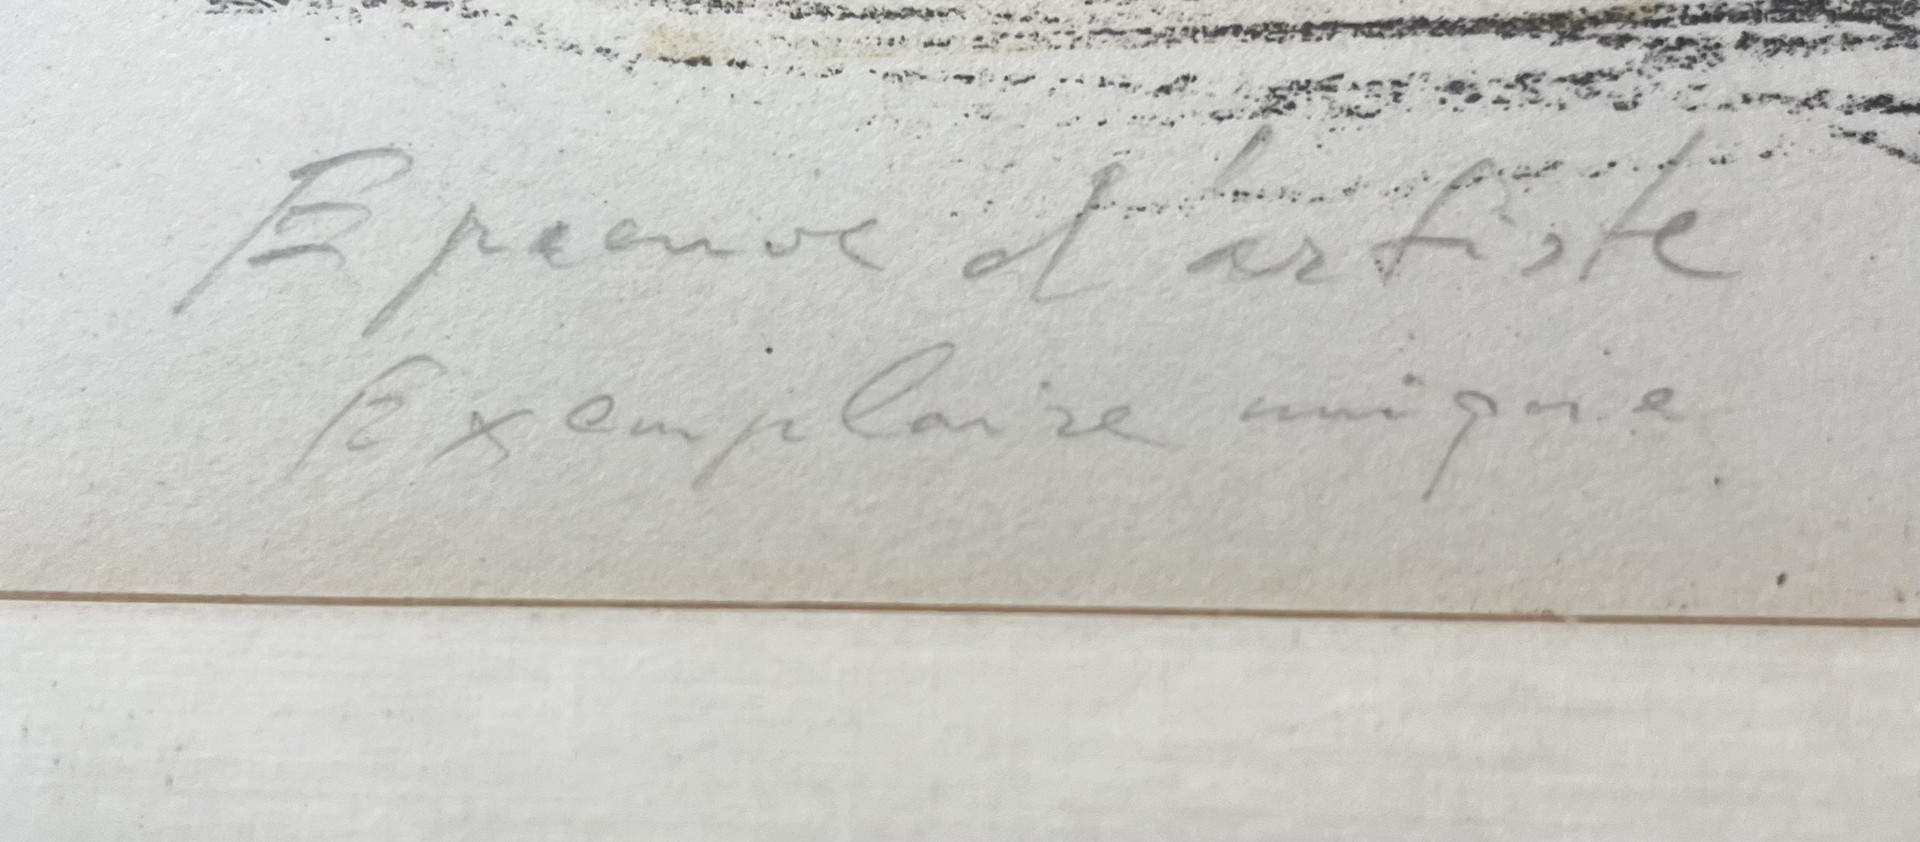 Epreuve d'artiste
Exemplaire unique